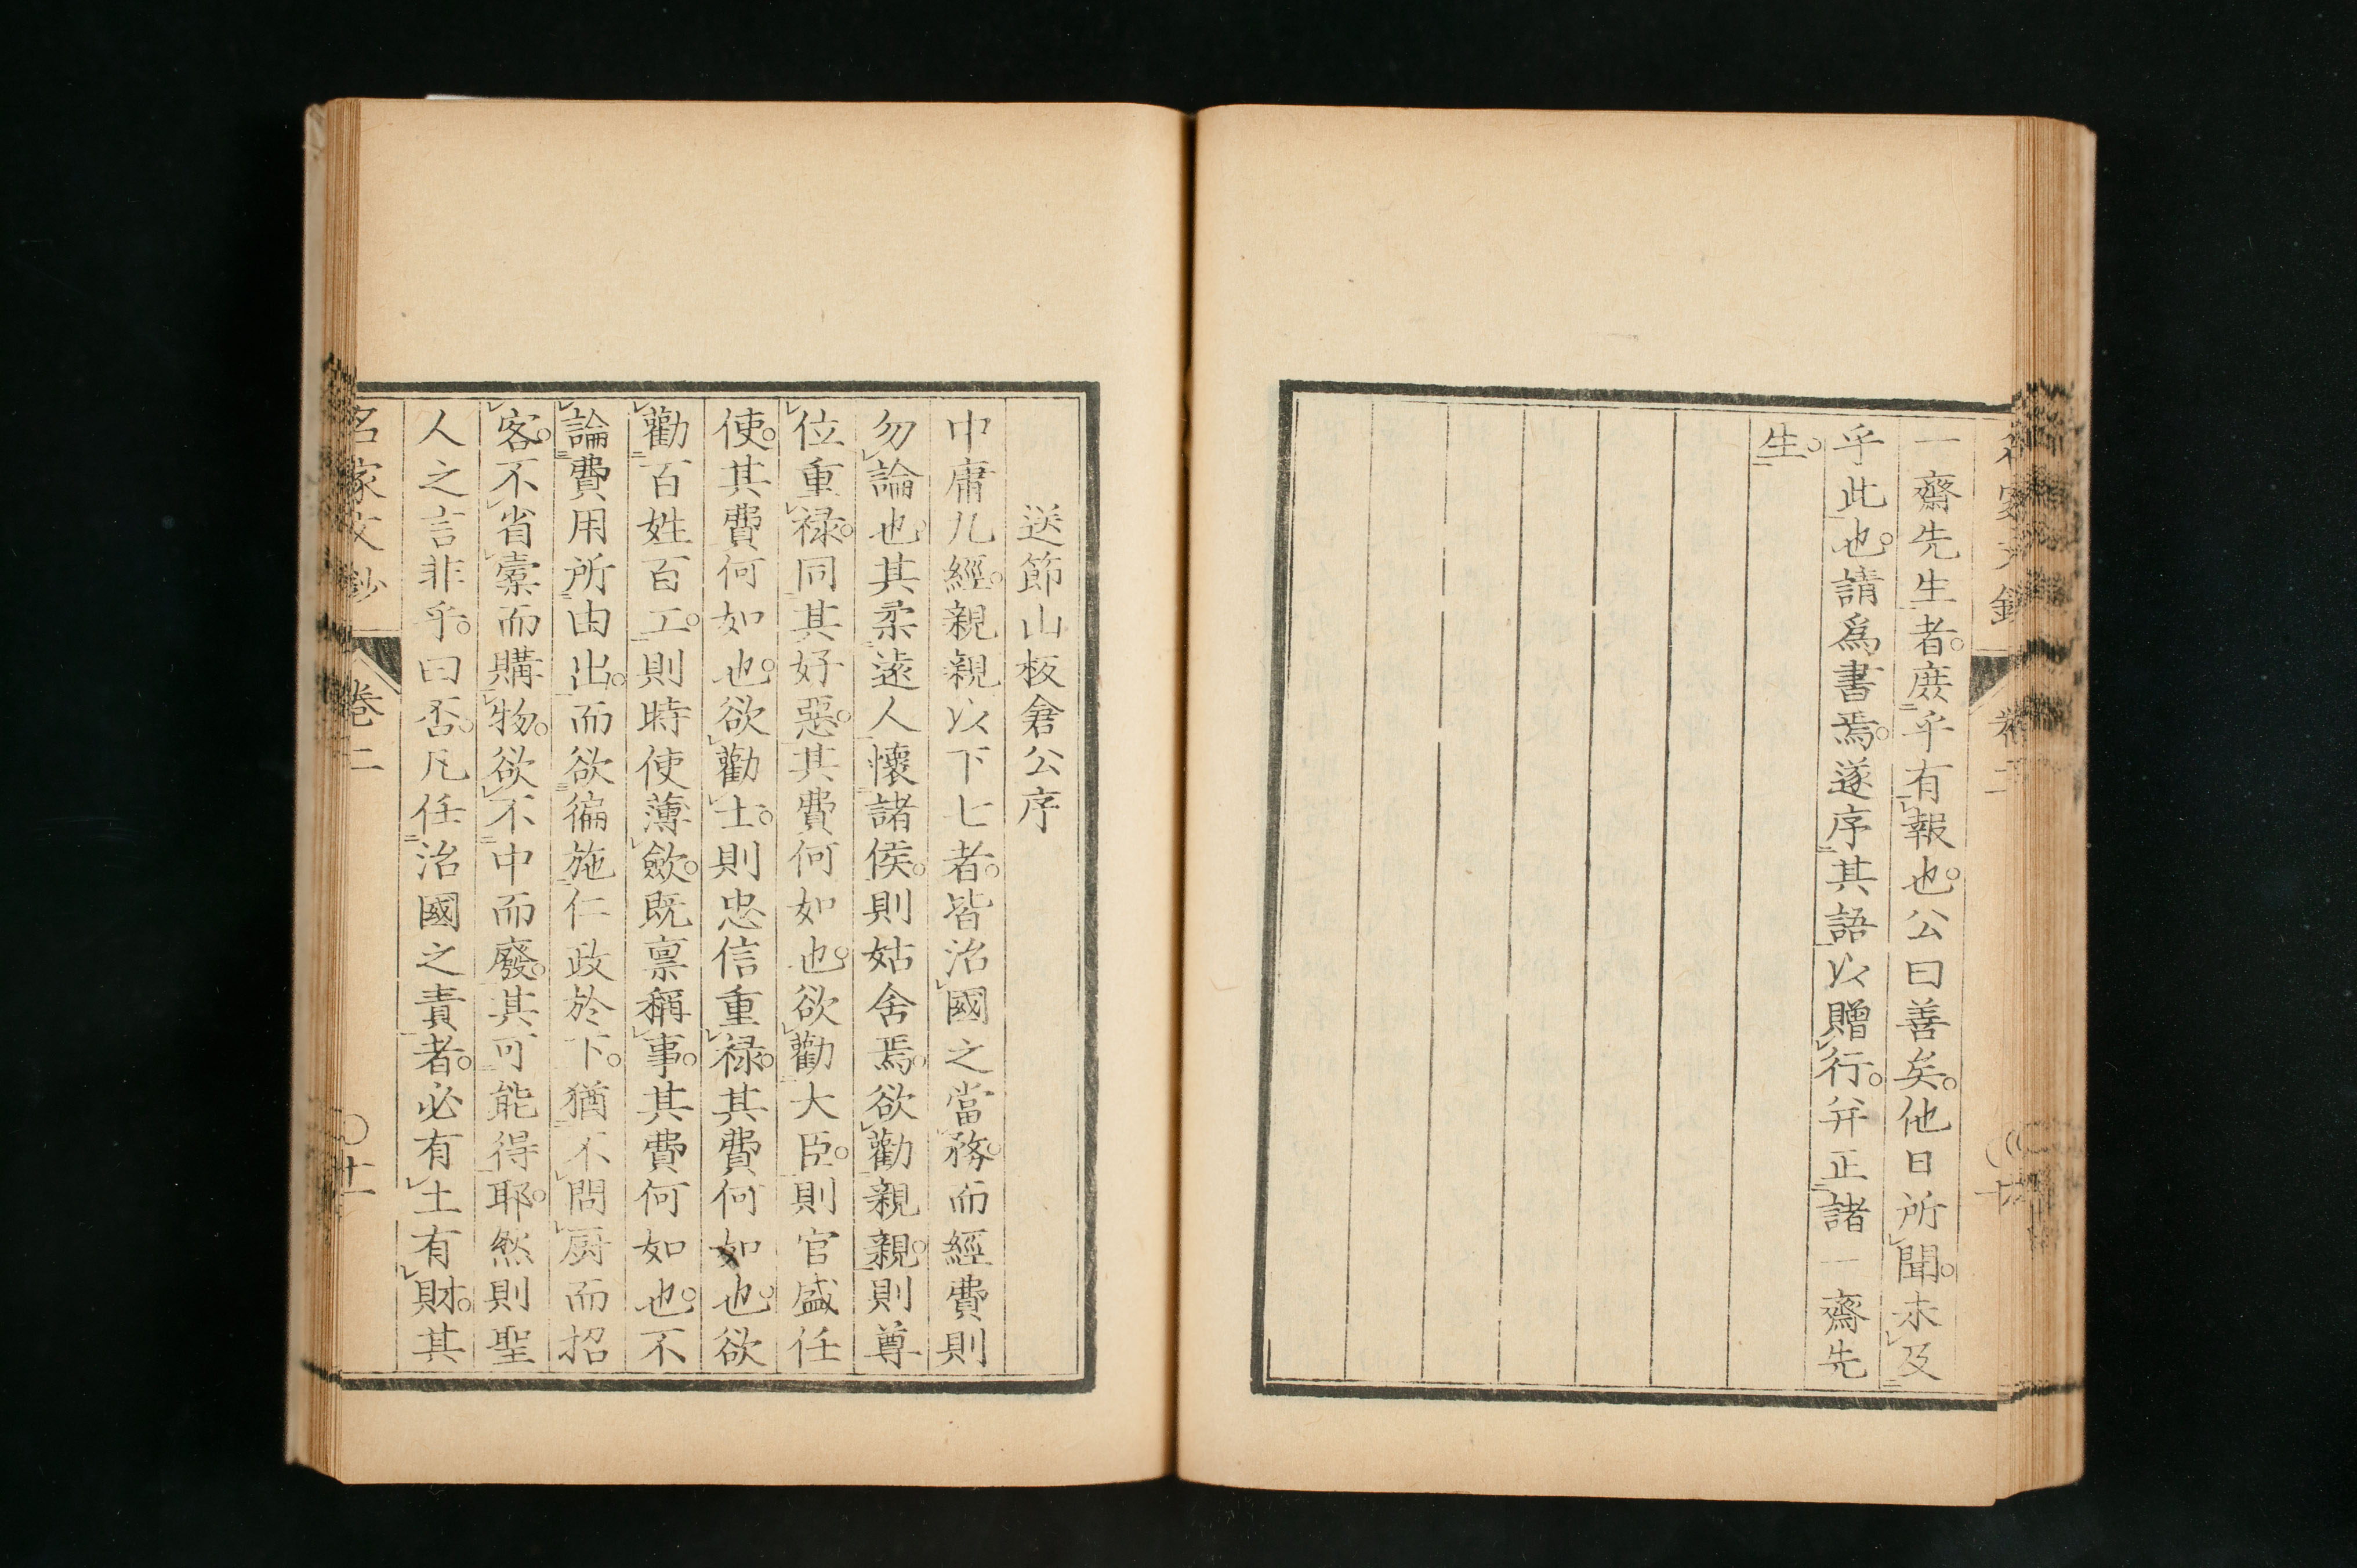 一齋先生者。庶乎有報也。公曰善矣。他日所聞。未及
乎此也。請爲書焉。遂序其語以贈行。并正諸一齋先
生。
送節山板倉公序
中庸九經。親親以下七者。皆治國之當務。而經費則
勿論也。其柔遠人懷諸侯。則姑舍焉。欲勸親親。則尊
位重祿。同其好惡。其費何如也。欲勸大臣。則官盛任
使。其費何如也。欲勸士。則忠信重祿。其費何如也。欲
勸百姓百工。則時使薄斂。既稟稱事。其費何如也。不
論費用所由出。而欲徧施仁政於下。猶不問厨而招
客。不省橐而購物。欲不中而廢。其可能得耶。然則聖
人之言非乎。曰否。凡任治國之責者。必有土有財。其
名家文鈔 卷二 〇十一